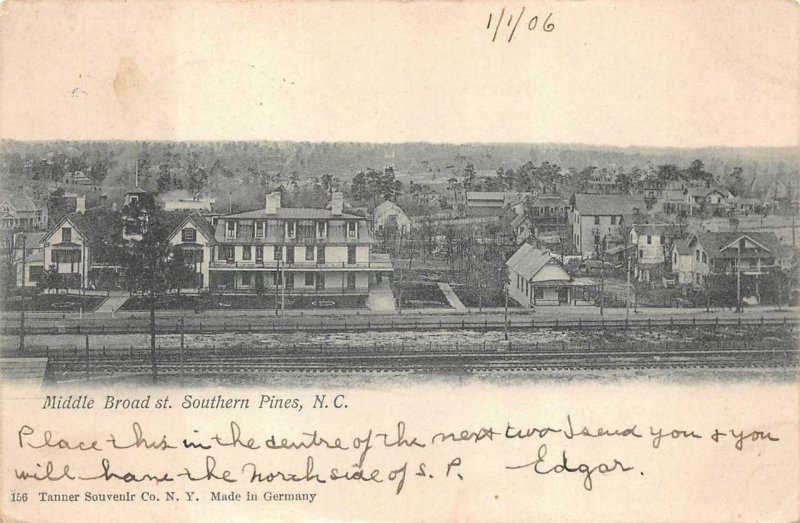 1/1/06
Middle Broad st. Southern Pines, N. C.
Place this in the centre of the next two I send you & you
will have the North side of S. P. Edgar.
156 Tanner Souvenir Co. N. Y. Made in Germany